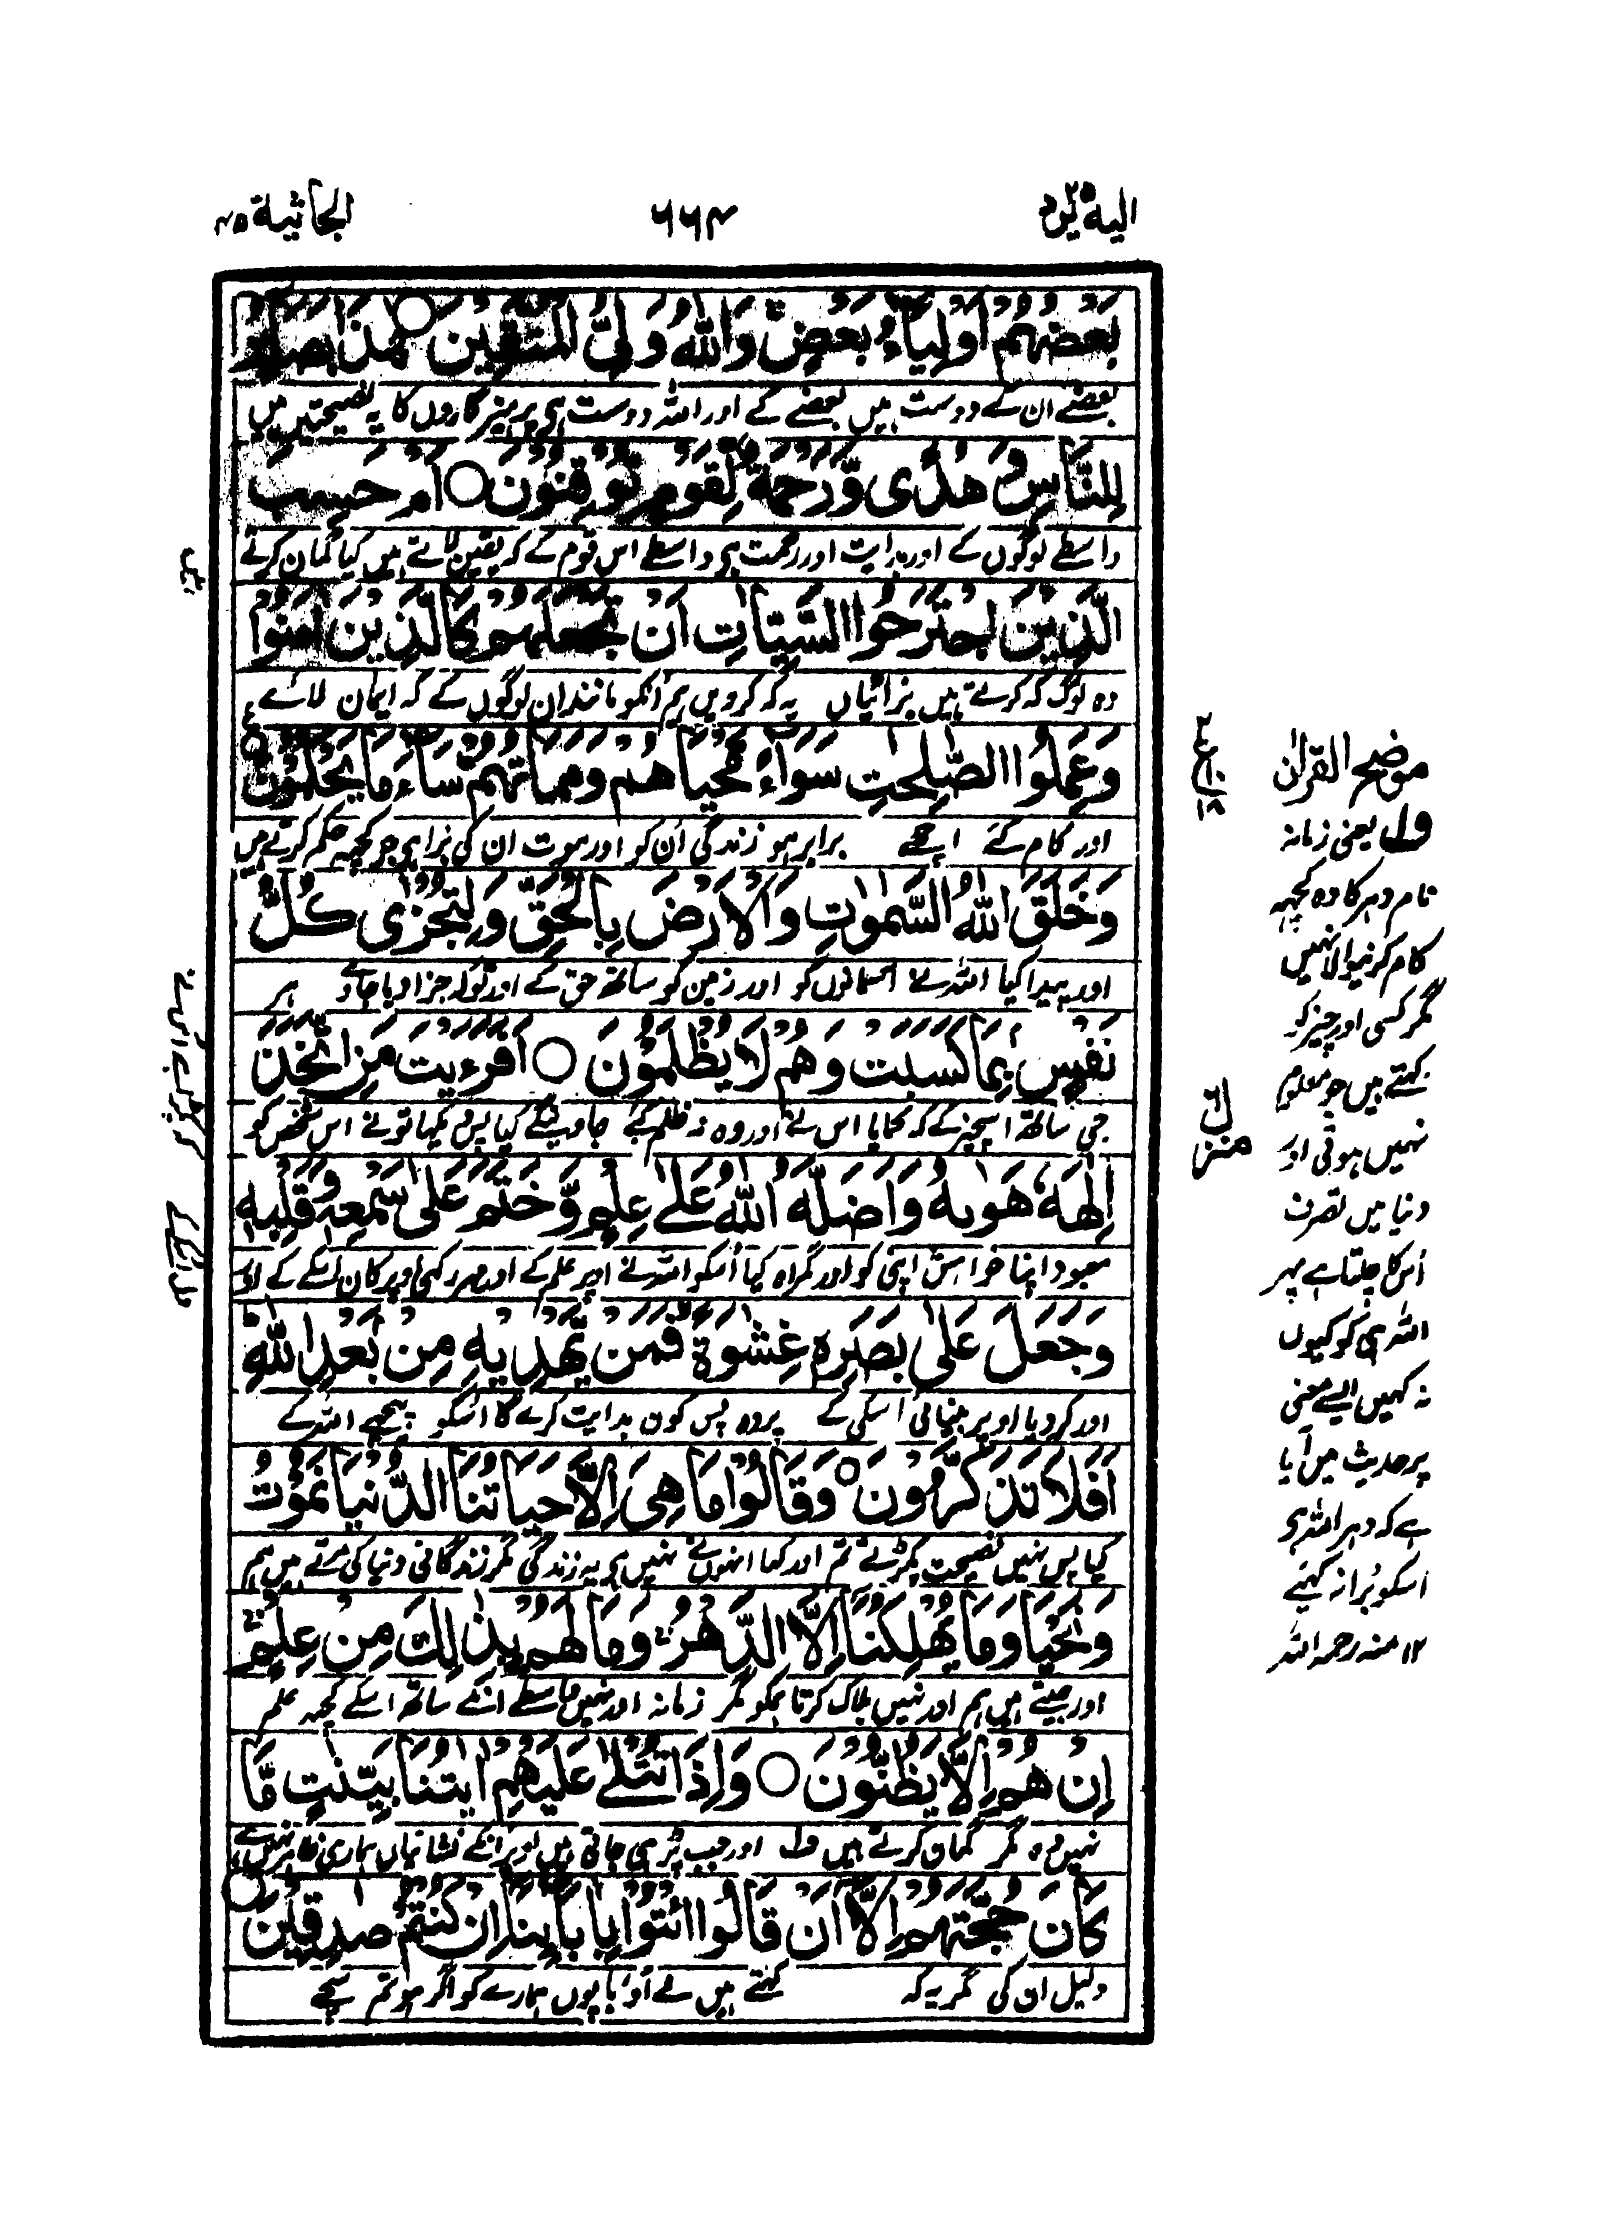 الیه یرد ۲۵
۶۶۴
الجاثیة ۴۵
بَعْضُهُمْ اَوْلِيَآءُ بَعْضٍ وَاللّٰهُ وَلِيُّ الْمُتَّقِيْنَ ○ هٰذَا بَصَآئِرُ
بعضے ان کے دوست ہیں بعضے کے اور اللہ دوست ہی پرہیزگاروں کا یہ نصیحتیں ہیں
لِلنَّاسِ وَهُدًى وَّرَحْمَةٌ لِّقَوْمٍ يُّوْقِنُوْنَ ○ اَمْ حَسِبَ
واسطے لوگوں کے اور ہدایت اور رحمت ہی واسطے اس قوم کے کہ یقین لاتے ہیں کیا گمان کرتے
الَّذِيْنَ اجْتَرَحُوا السَّيِّاٰتِ اَنْ نَّجْعَلَهُمْ كَالَّذِيْنَ اٰمَنُوْا
وہ لوگ کہ کرتے ہیں برائیاں یہ کہ کر دیں ہم انکو مانند ان لوگوں کے کہ ایمان لائے
وَعَمِلُوا الصّٰلِحٰتِ سَوَآءً مَّحْيَاهُمْ وَمَمَاتُهُمْ سَآءَ مَا يَحْكُمُوْنَ
اور کام کئے اچھے برابر ہو زندگی اُن کو اور موت ان کی برا ہی جو کچھہ حکم کرتے ہیں
وَخَلَقَ اللّٰهُ السَّمٰوٰتِ وَالْاَرْضَ بِالْحَقِّ وَلِتُجْزٰى كُلُّ
اور پیدا کیا اللہ نے آسمانوں کو اور زمین کو ساتھ حق کے اور توکہ جزا دیا جاوے ہر
نَفْسٍ بِمَا كَسَبَتْ وَهُمْ لَا يُظْلَمُوْنَ ○ اَفَرَءَيْتَ مَنِ اتَّخَذَ
جی ساتھ اسچیز کے کہ کمایا اس نے اور وہ نہ ظلم کئے جاوینگے کیا پس دیکھا تونے اس شخص کو
اِلٰهَهٗ هَوٰىهُ وَاَضَلَّهُ اللّٰهُ عَلٰى عِلْمٍ وَّخَتَمَ عَلٰى سَمْعِهٖ وَقَلْبِهٖ
معبود اپنا خواہش اپنی کو اور گمراہ کیا اُسکو اللہ نے اوپر علم کے اور مہر رکھی اوپر کان اسکے کے اور
وَجَعَلَ عَلٰى بَصَرِهٖ غِشٰوَةً فَمَنْ يَّهْدِيْهِ مِنْ بَعْدِ اللّٰهِ
اور کر دیا اوپر بینائی اسکی کے پردہ پس کون ہدایت کرے گا اسکو پیچھے اللہ کے
اَفَلَا تَذَكَّرُوْنَ ○ وَقَالُوْا مَا هِيَ اِلَّا حَيَاتُنَا الدُّنْيَا نَمُوْتُ
کیا پس نہیں نصیحت پکڑتے تم اور کہا انہوں نے نہیں ہی یہ زندگی مگر زندگانی دنیا کی مرتے ہیں ہم
وَنَحْيَا وَمَا يُهْلِكُنَا اِلَّا الدَّهْرُ وَمَا لَهُمْ بِذٰلِكَ مِنْ عِلْمٍ
اور جیتے ہیں ہم اور نہیں ہلاک کرتا ہمکو مگر زمانہ اور نہیں واسطے انکے ساتھ اسکے کچھہ علم
اِنْ هُمْ اِلَّا يَظُنُّوْنَ ○ وَاِذَا تُتْلٰى عَلَيْهِمْ اٰيٰتُنَا بَيِّنٰتٍ مَّا
نہیں وہ مگر گمان کرتے ہیں ف۱ اور جب پڑھی جاتی ہیں اوپر انکے نشانیاں ہماری
كَانَ حُجَّتَهُمْ اِلَّا اَنْ قَالُوا ائْتُوْا بِاٰبَآئِنَا اِنْ كُنْتُمْ صٰدِقِيْنَ
دلیل ان کی مگر یہ کہ کہتے ہیں لے آؤ باپوں ہمارے کو اگر ہو تم سچے
منزل ۶
موضح القرآن
ف۱ یعنی زمانہ
نام دہر کا وہ کچھہ
کام کرنیوالا نہیں
مگر کسی اور چیز کو
کہتے ہیں جو معلوم
نہیں ہوتی اور
دنیا میں تصرف
اُس کا چلتا ہے پھر
اللہ ہی کو کیوں
نہ کہیں ایسے معنی
پر حدیث میں آیا
ہے کہ دہر اللہ ہی
اسکو بُرا نہ کہئے
۱۲ منہ رحمہ اللہ